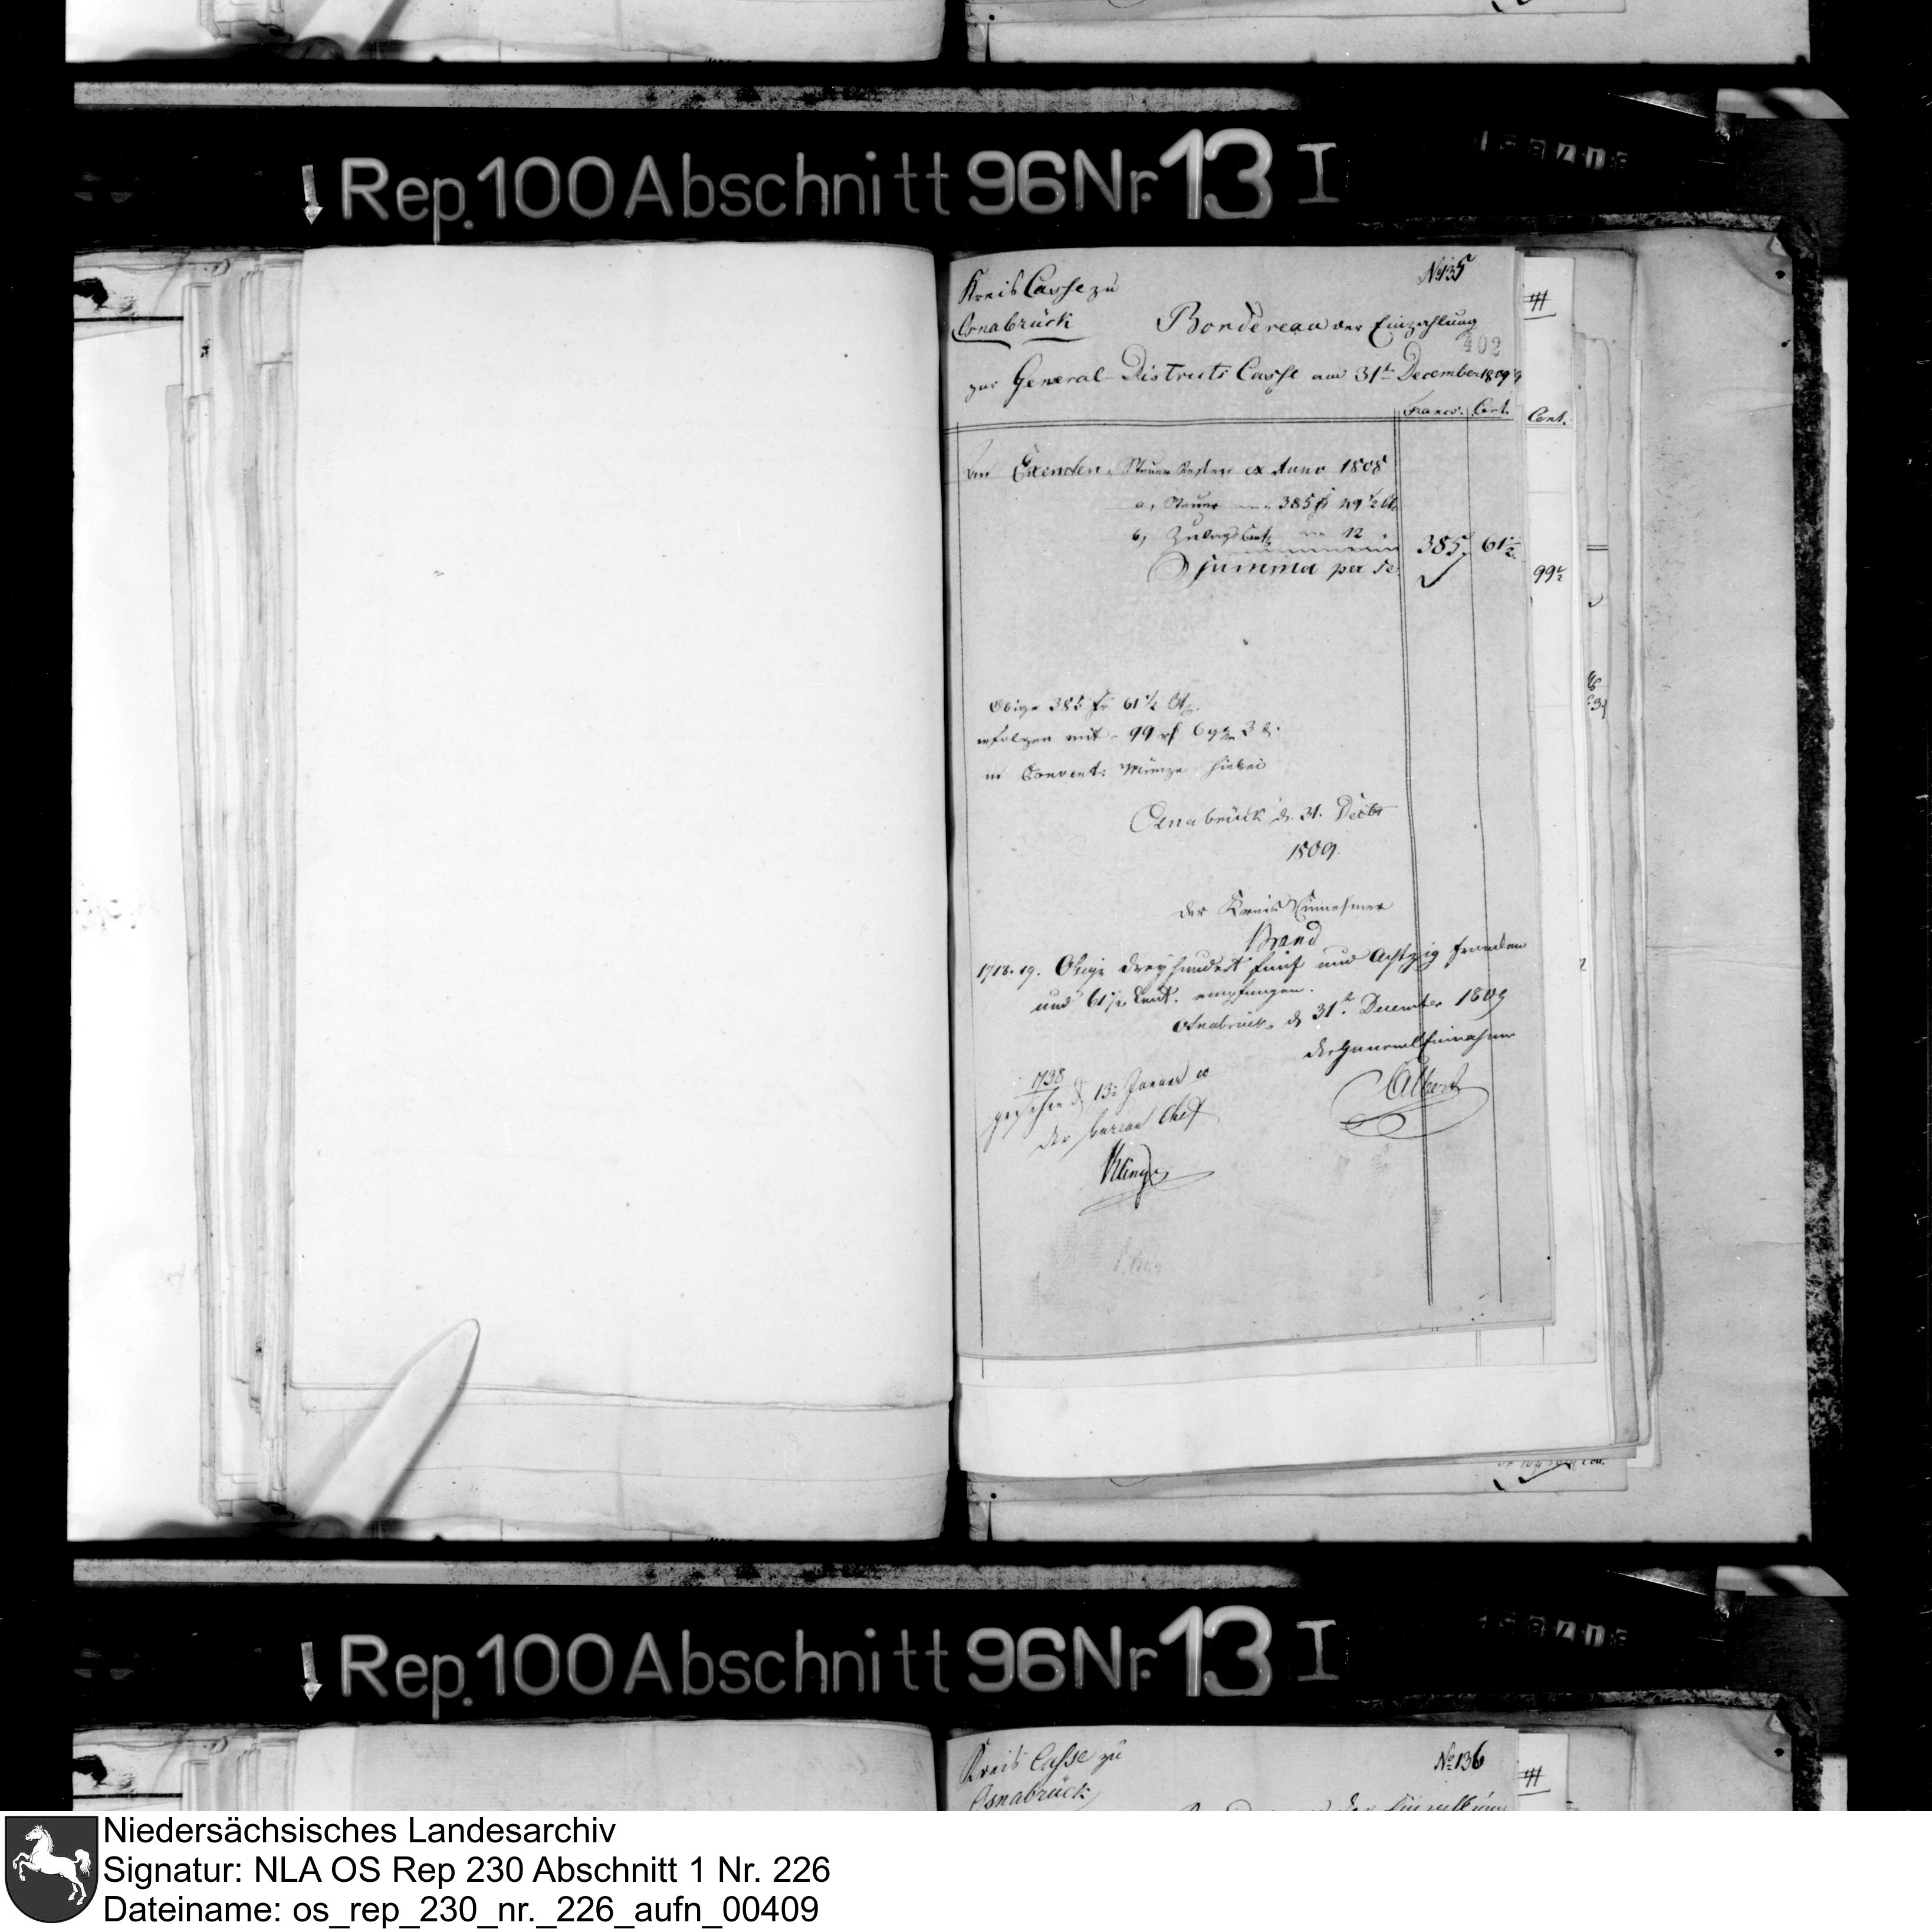 Rep. 100 Abschnitt 96 Nr. 13 I
Kreis Casse zu
Osnabrück
No 135
Bordereau der Einzahlung
402
zur General Districts Casse am 31t December 1809
Francs. Cent.
Cent.
An Exemten Steuer Resten ex Anno 1808
a, Steuer 385 fr 49 1/2 Ct.
b, Zulags Cent. 12
385, 61 1/2
Summa per se
99 1/2
Obige 385 fr 61 1/2 Ct.
erfolgen mit 99 rt 6 gg 3 d.
in Convent: Münze hiebei
Osnabrück d. 31. Decbr
1809.
Der Kreis Einnehmer
Brand
1718. 19. Obige dreyhundert fünf und Achtzig Franken
und 61 1/2 Cent. empfangen.
Osnabrück d 31t. December 1809
der General Einnehmer
Albert
1738
gesehen d. 13. Januar 10
der bureau Chef
Klinge
Rep. 100 Abschnitt 96 Nr. 13 I
Kreis Casse zu
Osnabrück
No 136
Niedersächsisches Landesarchiv
Signatur: NLA OS Rep 230 Abschnitt 1 Nr. 226
Dateiname: os_rep_230_nr._226_aufn_00409